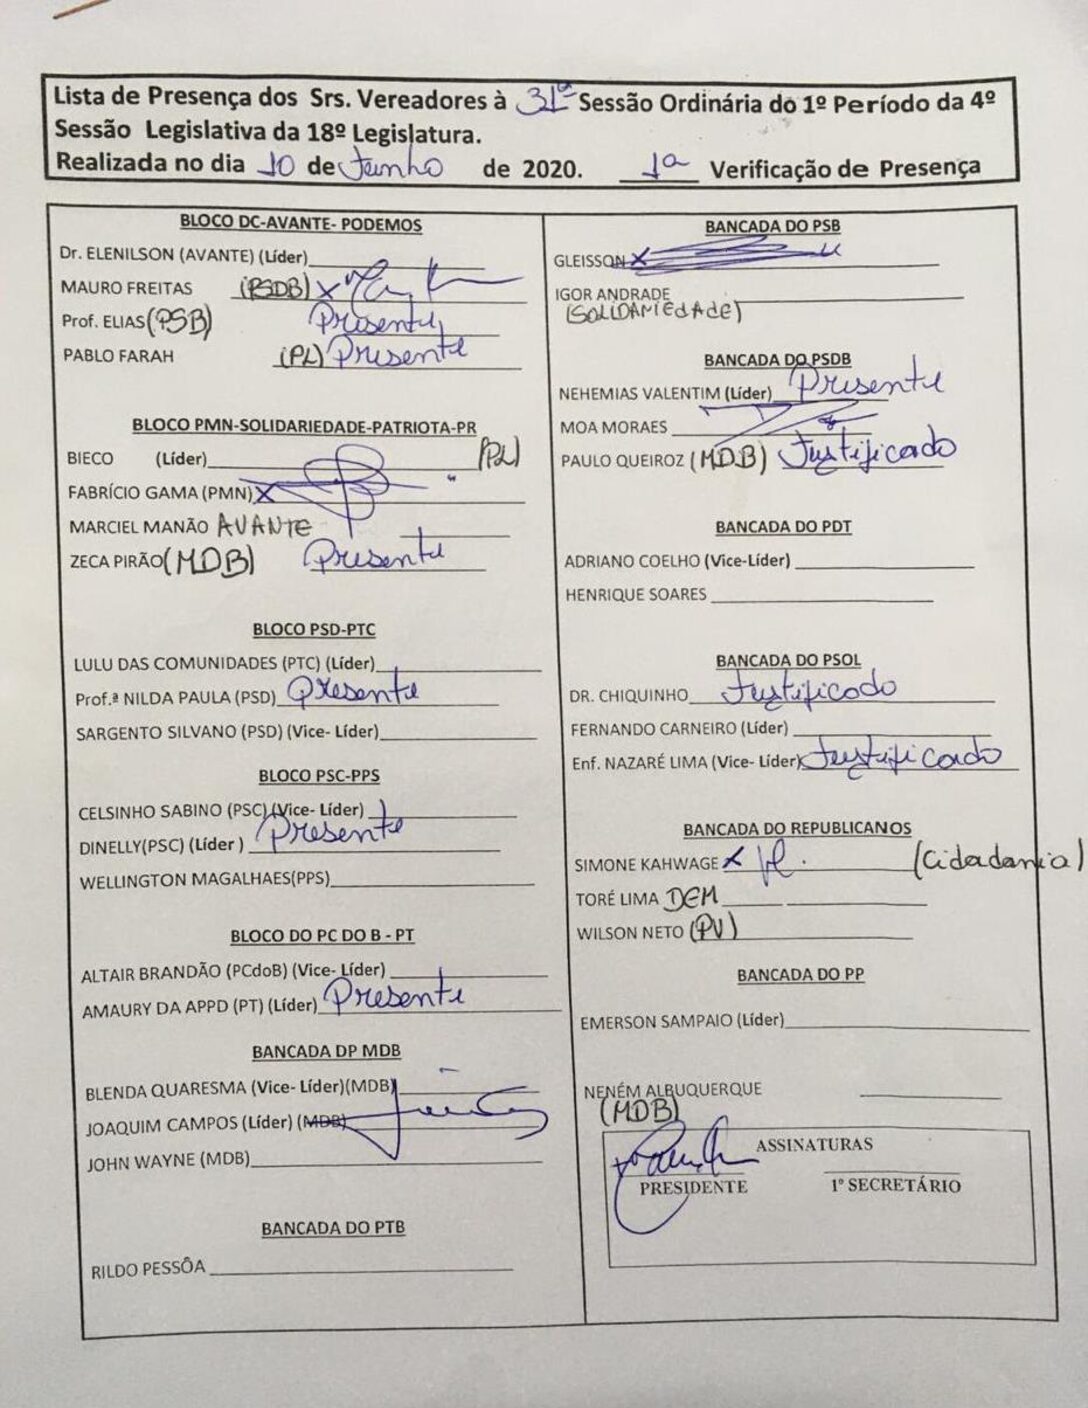 Lista de Presença dos Srs. Vereadores à 31ª Sessão Ordinária do 1º Período da 4º
Sessão Legislativa da 18º Legislatura.
Realizada no dia 10 de Junho de 2020. 1ª Verificação de Presença
BLOCO DC-AVANTE- PODEMOS
Dr. ELENILSON (AVANTE) (Líder)
MAURO FREITAS (PSDB) x
Prof. ELIAS (PSB) Presente
PABLO FARAH (PL) Presente
BLOCO PMN-SOLIDARIEDADE-PATRIOTA-PR
BIECO (Líder) (PL)
FABRÍCIO GAMA (PMN) X
MARCIEL MANÃO AVANTE
ZECA PIRÃO (MDB) Presente
BLOCO PSD-PTC
LULU DAS COMUNIDADES (PTC) (Líder)
Prof.ª NILDA PAULA (PSD) Presente
SARGENTO SILVANO (PSD) (Vice- Líder)
BLOCO PSC-PPS
CELSINHO SABINO (PSC) (Vice- Líder)
DINELLY(PSC) (Líder ) Presente
WELLINGTON MAGALHAES(PPS)
BLOCO DO PC DO B - PT
ALTAIR BRANDÃO (PCdoB) (Vice- Líder)
AMAURY DA APPD (PT) (Líder) Presente
BANCADA DP MDB
BLENDA QUARESMA (Vice- Líder)(MDB)
JOAQUIM CAMPOS (Líder) (MDB)
JOHN WAYNE (MDB)
BANCADA DO PTB
RILDO PESSÔA
BANCADA DO PSB
GLEISSON X
IGOR ANDRADE
(SOLIDARIEdAdE)
BANCADA DO PSDB
NEHEMIAS VALENTIM (Líder) Presente
MOA MORAES
PAULO QUEIROZ (MDB) Justificado
BANCADA DO PDT
ADRIANO COELHO (Vice-Líder)
HENRIQUE SOARES
BANCADA DO PSOL
DR. CHIQUINHO Justificado
FERNANDO CARNEIRO (Líder)
Enf. NAZARÉ LIMA (Vice- Líder) Justificado
BANCADA DO REPUBLICANOS
SIMONE KAHWAGE x (Cidadania)
TORÉ LIMA DEM
WILSON NETO (PV)
BANCADA DO PP
EMERSON SAMPAIO (Líder)
NENÉM ALBUQUERQUE
(MDB)
ASSINATURAS
PRESIDENTE 1º SECRETÁRIO